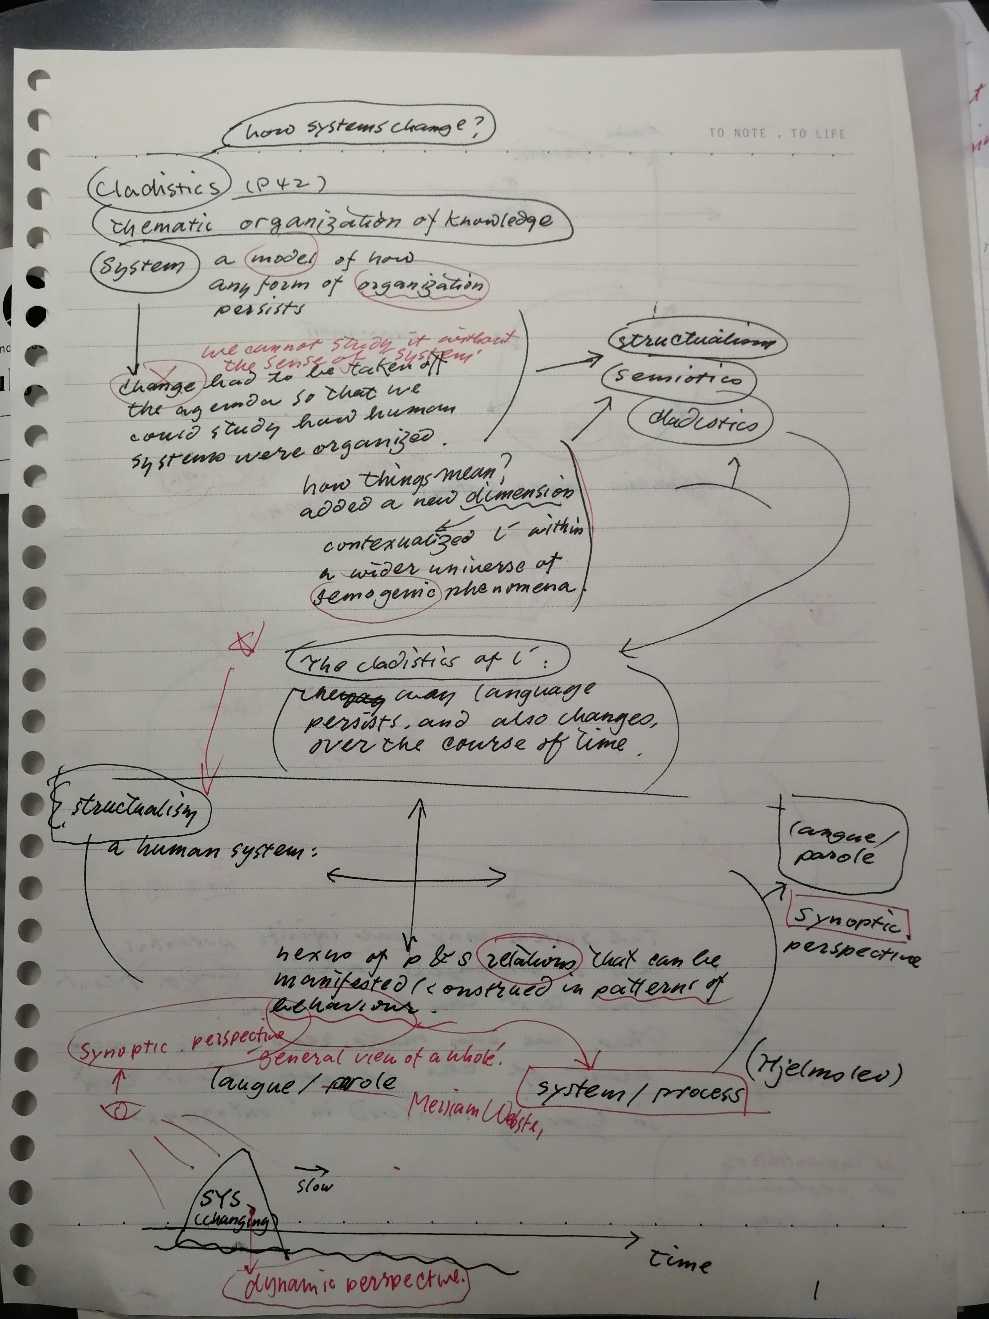 how systems change?
TO NOTE . TO LIFE
Cladistics (P42)
thematic organization of knowledge
System a model of how
any form of organization
persists
we cannot study it without
the sense of 'system'
change had to be taken off
the agenda so that we
could study how human
systems were organized.
structualism
semiotics
cladistics
how things mean?
added a new dimension
contexualized L within
a wider universe of
semogenic phenomena.
The cladistics of L:
way language
persists, and also changes,
over the course of time.
structualism
a human system:
langue/
parole
synoptic
perspective
nexus of P & S relations that can be
manifested/construed in patterns of
behaviour.
synoptic perspective
general view of a whole!
langue/parole
system/process
(Hjelmslev)
Merriam Webster,
SYS
(changing)
slow
time
dynamic perspective.
1